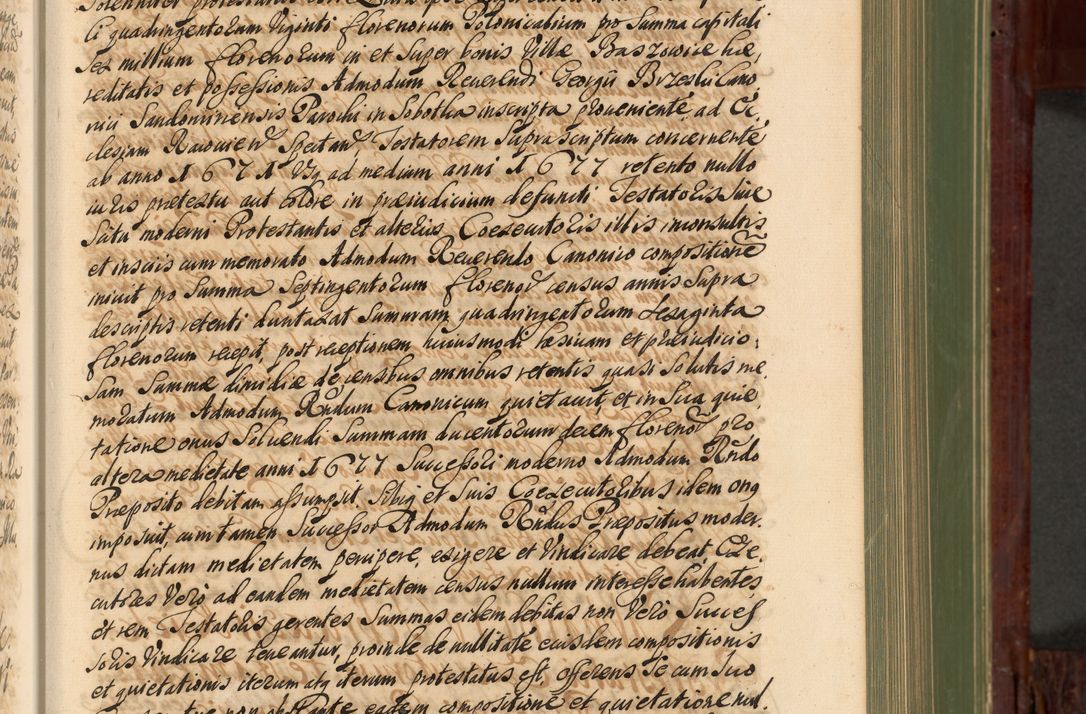 ti quadringentorum Viginti florenorum Polonicalium pro Summa capitali
Sex millium florenorum in et Super bonis Villæ Baszowice hæ,
reditatis et possessionis Admodum Reverendi Georgii Brzeski Cano
nici Sandomiriensis Parochi in Sobotka inscripta proveniente, ad Ec,
clesiam Testatorem Supra Scriptum concernente
ab anno 1671 Vsq ad medium anni 1677 retento nullo
iuris prætextu aut colore in præiudicium defuncti Testatoris Sive
Scitu moderni Protestantis et alterius Coexecutoris illis inconsultis
et insciis cum memorato Admodum Reverendo Canonico compositione
iniuit pro Summa Septingentorum florenor census annis Supra
descriptis retenti duntaxat Summam quadringentorum Sexaginta
florenorum recepit, post receptionem huiusmodi læsivam et præiudicio,
Sam Summæ dimidiæ de censibus omnibus retentis quasi Solutis me,
moratum Admodum Rndum Canonicum quietauit, et in Sua quie,
tatione onus Soluendi Summam ducentorum decem florenor pro
altera medietate anni 1677 Successori moderno Admodum Rndo
Præposito debitam assumpsit Sibiq et Suis Coexecutoribus idem onq
imposuit, cum tamen Successor Admodum Rndus Præpositus moder,
nus dictam medietatem percipere, exigere et Vindicare debeat, Exe,
cutores Vero ad eandem medietatem census nullum interesse habentes
et rem Testatoris gerentes Summas eidem debitas non Vero Succes
Soris Vindicare teneantur, proinde de nullitate eiusdem compositionis
et quietationis iterum atq iterum protestatus est, offerens Se cum Suo
non obstante eadem compositione et quietatione nul,